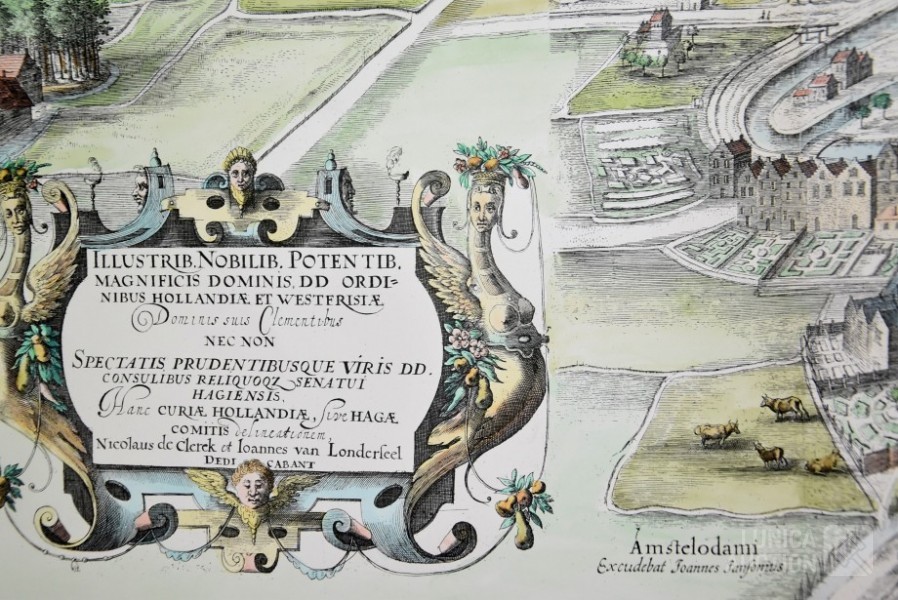 ILLUSTRIB. NOBILIB. POTENTIB.
MAGNIFICIS DOMINIS, DD ORDI-
NIBUS HOLLANDIÆ ET WESTFRISIÆ
Dominis suis Clementibus
NEC NON
SPECTATIS PRUDENTIBUSQUE VIRIS DD.
CONSULIBUS RELIQUOQZ SENATUI
HAGIENSIS,
Hanc CURIÆ HOLLANDIÆ, sive HAGÆ
COMITIS delineationem,
Nicolaus de Clerek et Ioannes van Londerseel
DEDICABANT
Amstelodami
Excudebat Joannes Jansonius
UNICA